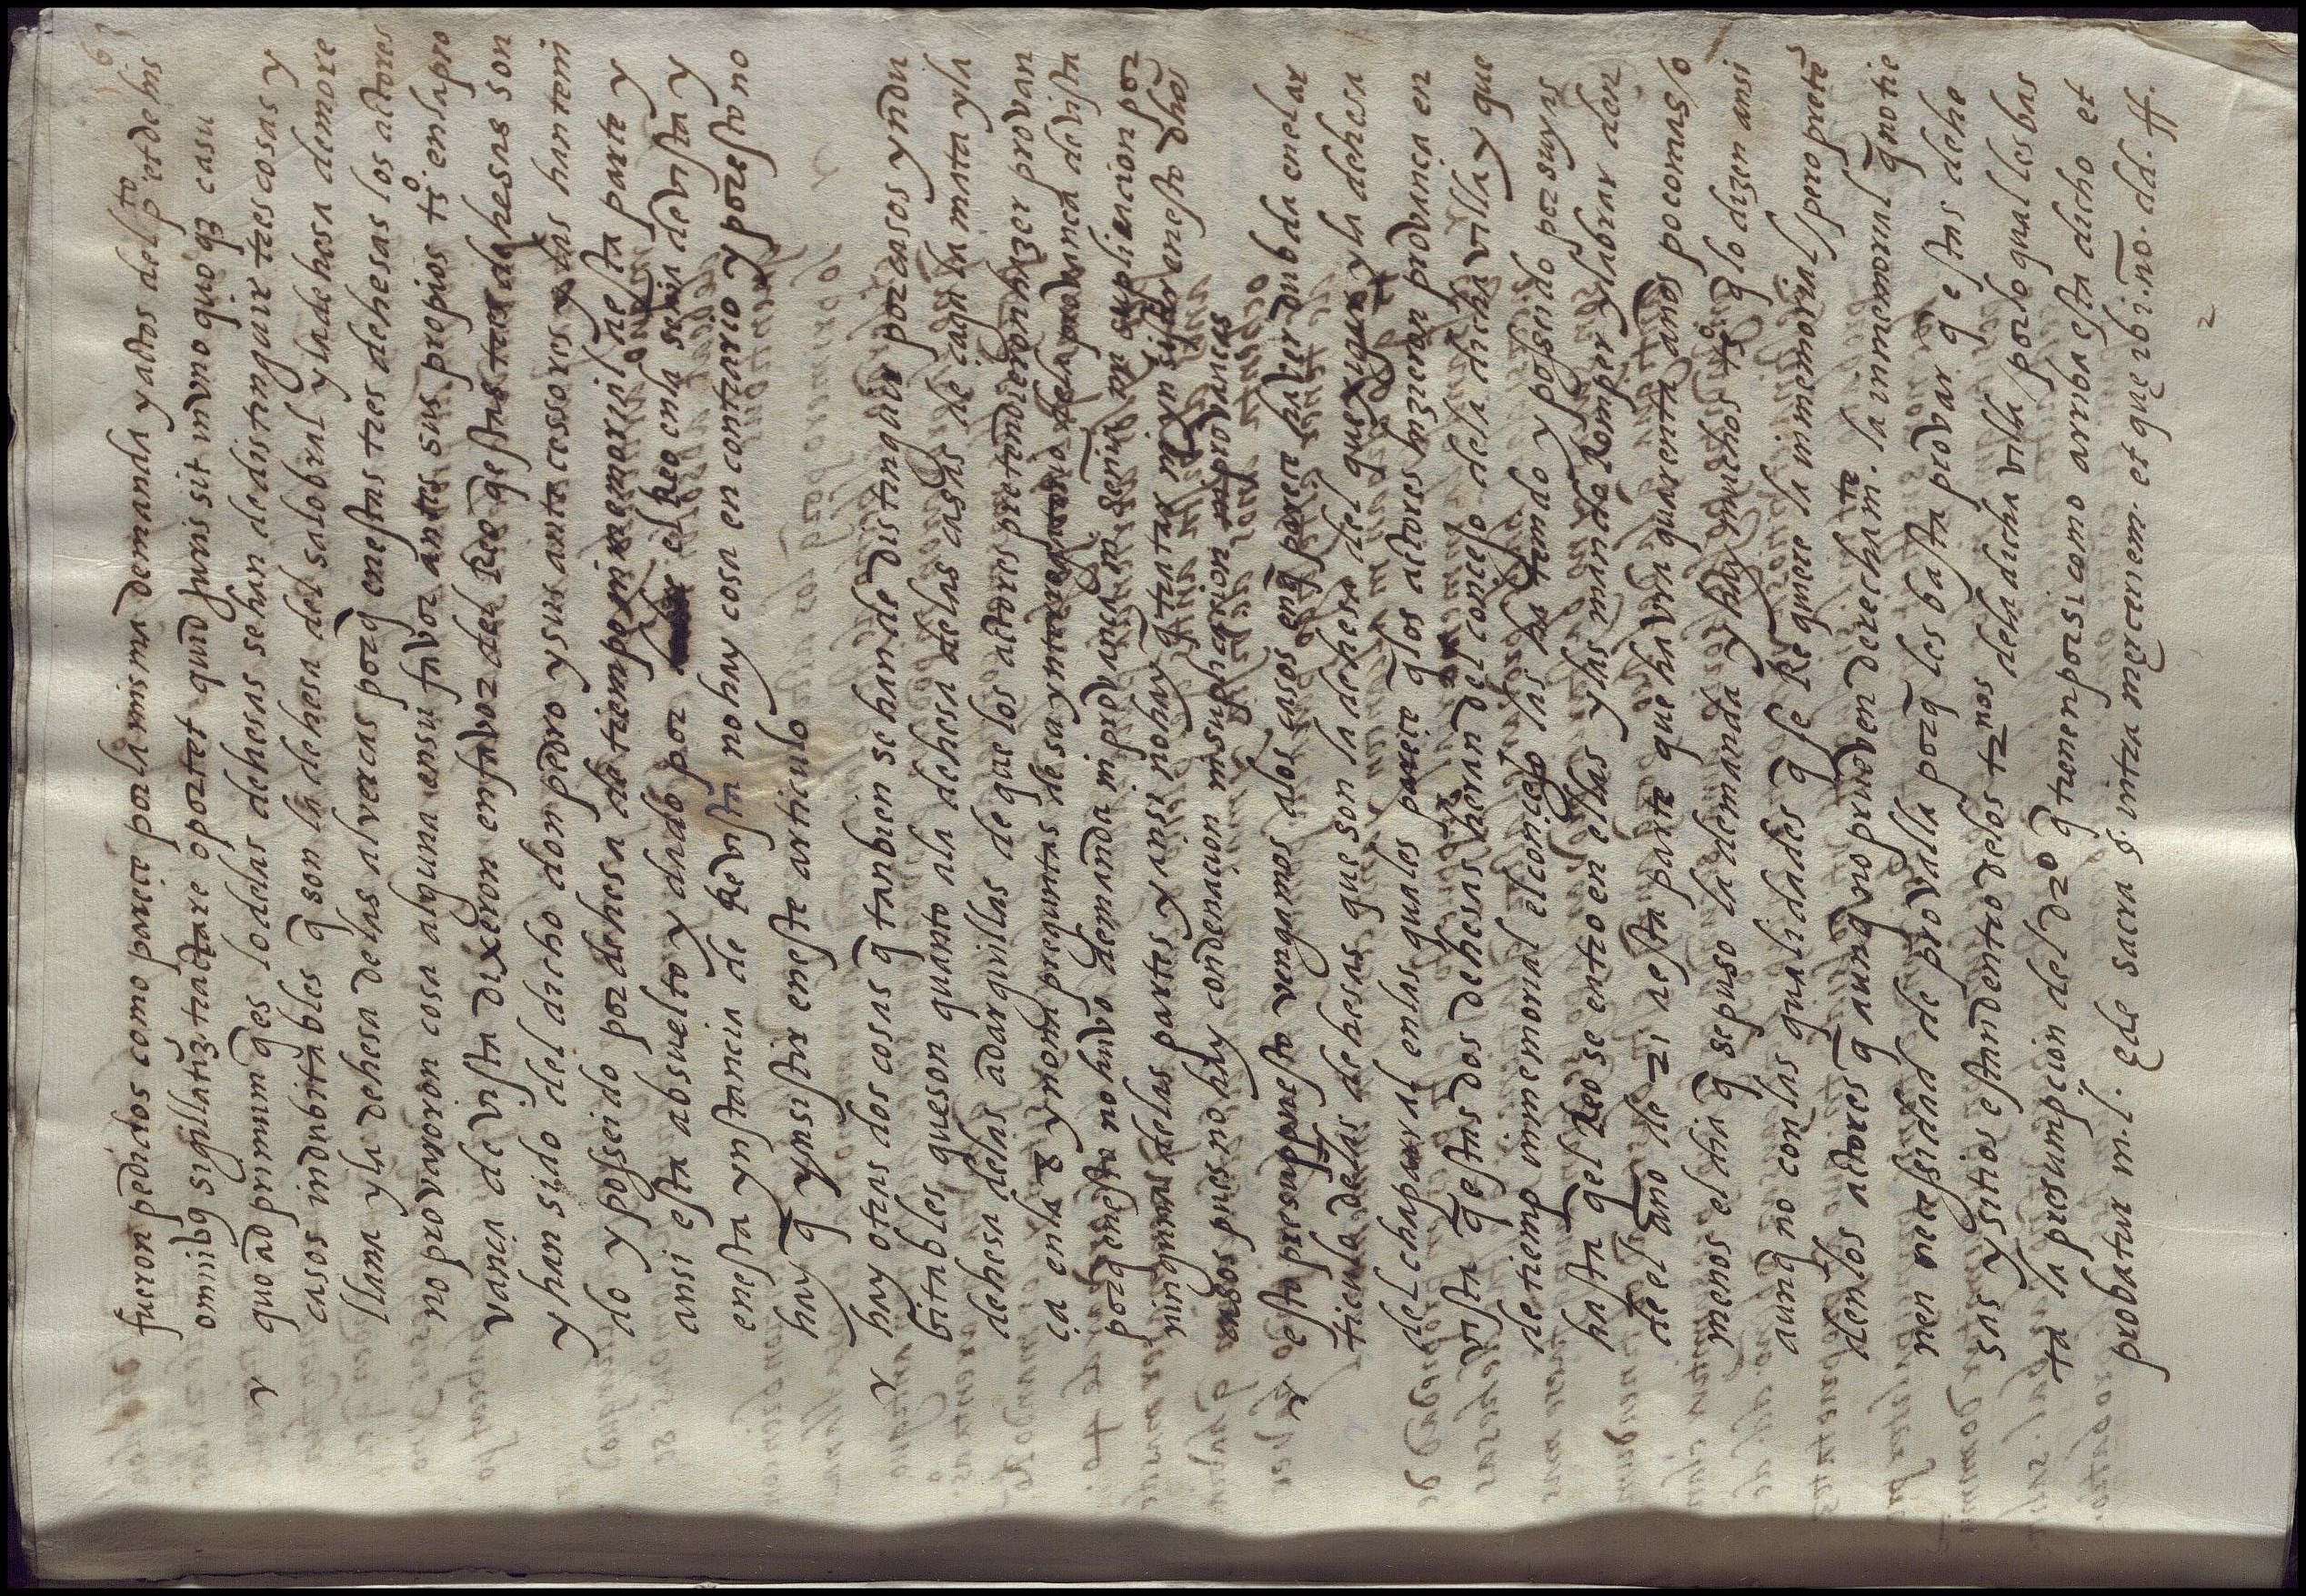 63
fueron pedidos como pareçe por la misma demanda y actos del pto et de his
omnibq sigillatiz tractare oportet quid juris sit in vno quoqz casu
y quo ad primum qes lo delas dehesas se han de distinguir tres cosas y
casos indubitables q son la dehesa del salobral y la dehesa de more
llana y la dehesa delas alvercas porq en estas tres dehesas los actores
no provaron cosa alguna en su favor antes sus propios tso en la pro
vança de vista dixeron en favor del Reo qestas tres dehesas son
y han sido del dicho don pedro y sus antecessores y las han teni
do y posseido por dehesa de tiempo inmemorial a esta parte y
ansi esta absuelto y dado por libre el Reo en la sentencia de vista y
en esta ynstancia de Revista no hay cosa en contrario y por esto no
hay q ynsistir en este articulo
y hay otras dos cosas q tanbien se han de distinguir por casos yndu
bitables que son quanto ala dehesa delas casas de la mata y la
dehesa delas adarguillas de que los actores pretendieron hazer provan
ça en la 8 y nona preguntas de su ynterrogatorio dela provança de vista
porq en esta no huvo demanda ni provança ni sentençia ni suplicacion por
ningunas delas partes y ansi no hay q tratar ni ynsistir en esto dhos
casos pues no hay condenacion ni suplicacion ni provanças
y esto presuppuesto vengamos alos casos en q pareçe haver dubda en el ar
ticulo delas dehesas que son la dehesa del quexigar y la dehesa
del chaparral en las quales pareçe q los actores hizieron provança en
vista q estas dos dehesas heran del conçejo dela dicha villa y que
de tiempo inmemorial el conçejo las ha tenido y posseido por suyas
hasta qel Reo se entro en ellas y las mando Romper y labrar den
de el año de 21 a esta parte que havra quarenta años poco mas o
menos el dia q se puso la demanda y hay muchos tso q lo dizen ansi
aunq no con las qualidades q se Requiere la inmemorial pero preten
den los actores q aunq no prueven derechamte la inmemorial q no tie
nen necessidad de provalla porq les basta provar q estas dehe
sas y sitios estan dentro delos trnos dela dicha villa por lo qual les bas
ta la presumpcion del dro q tienen por si como arriba esta dicho et
probatur in l. ede sacra §. intra maceriem. et que ibi. no. dd. ff.